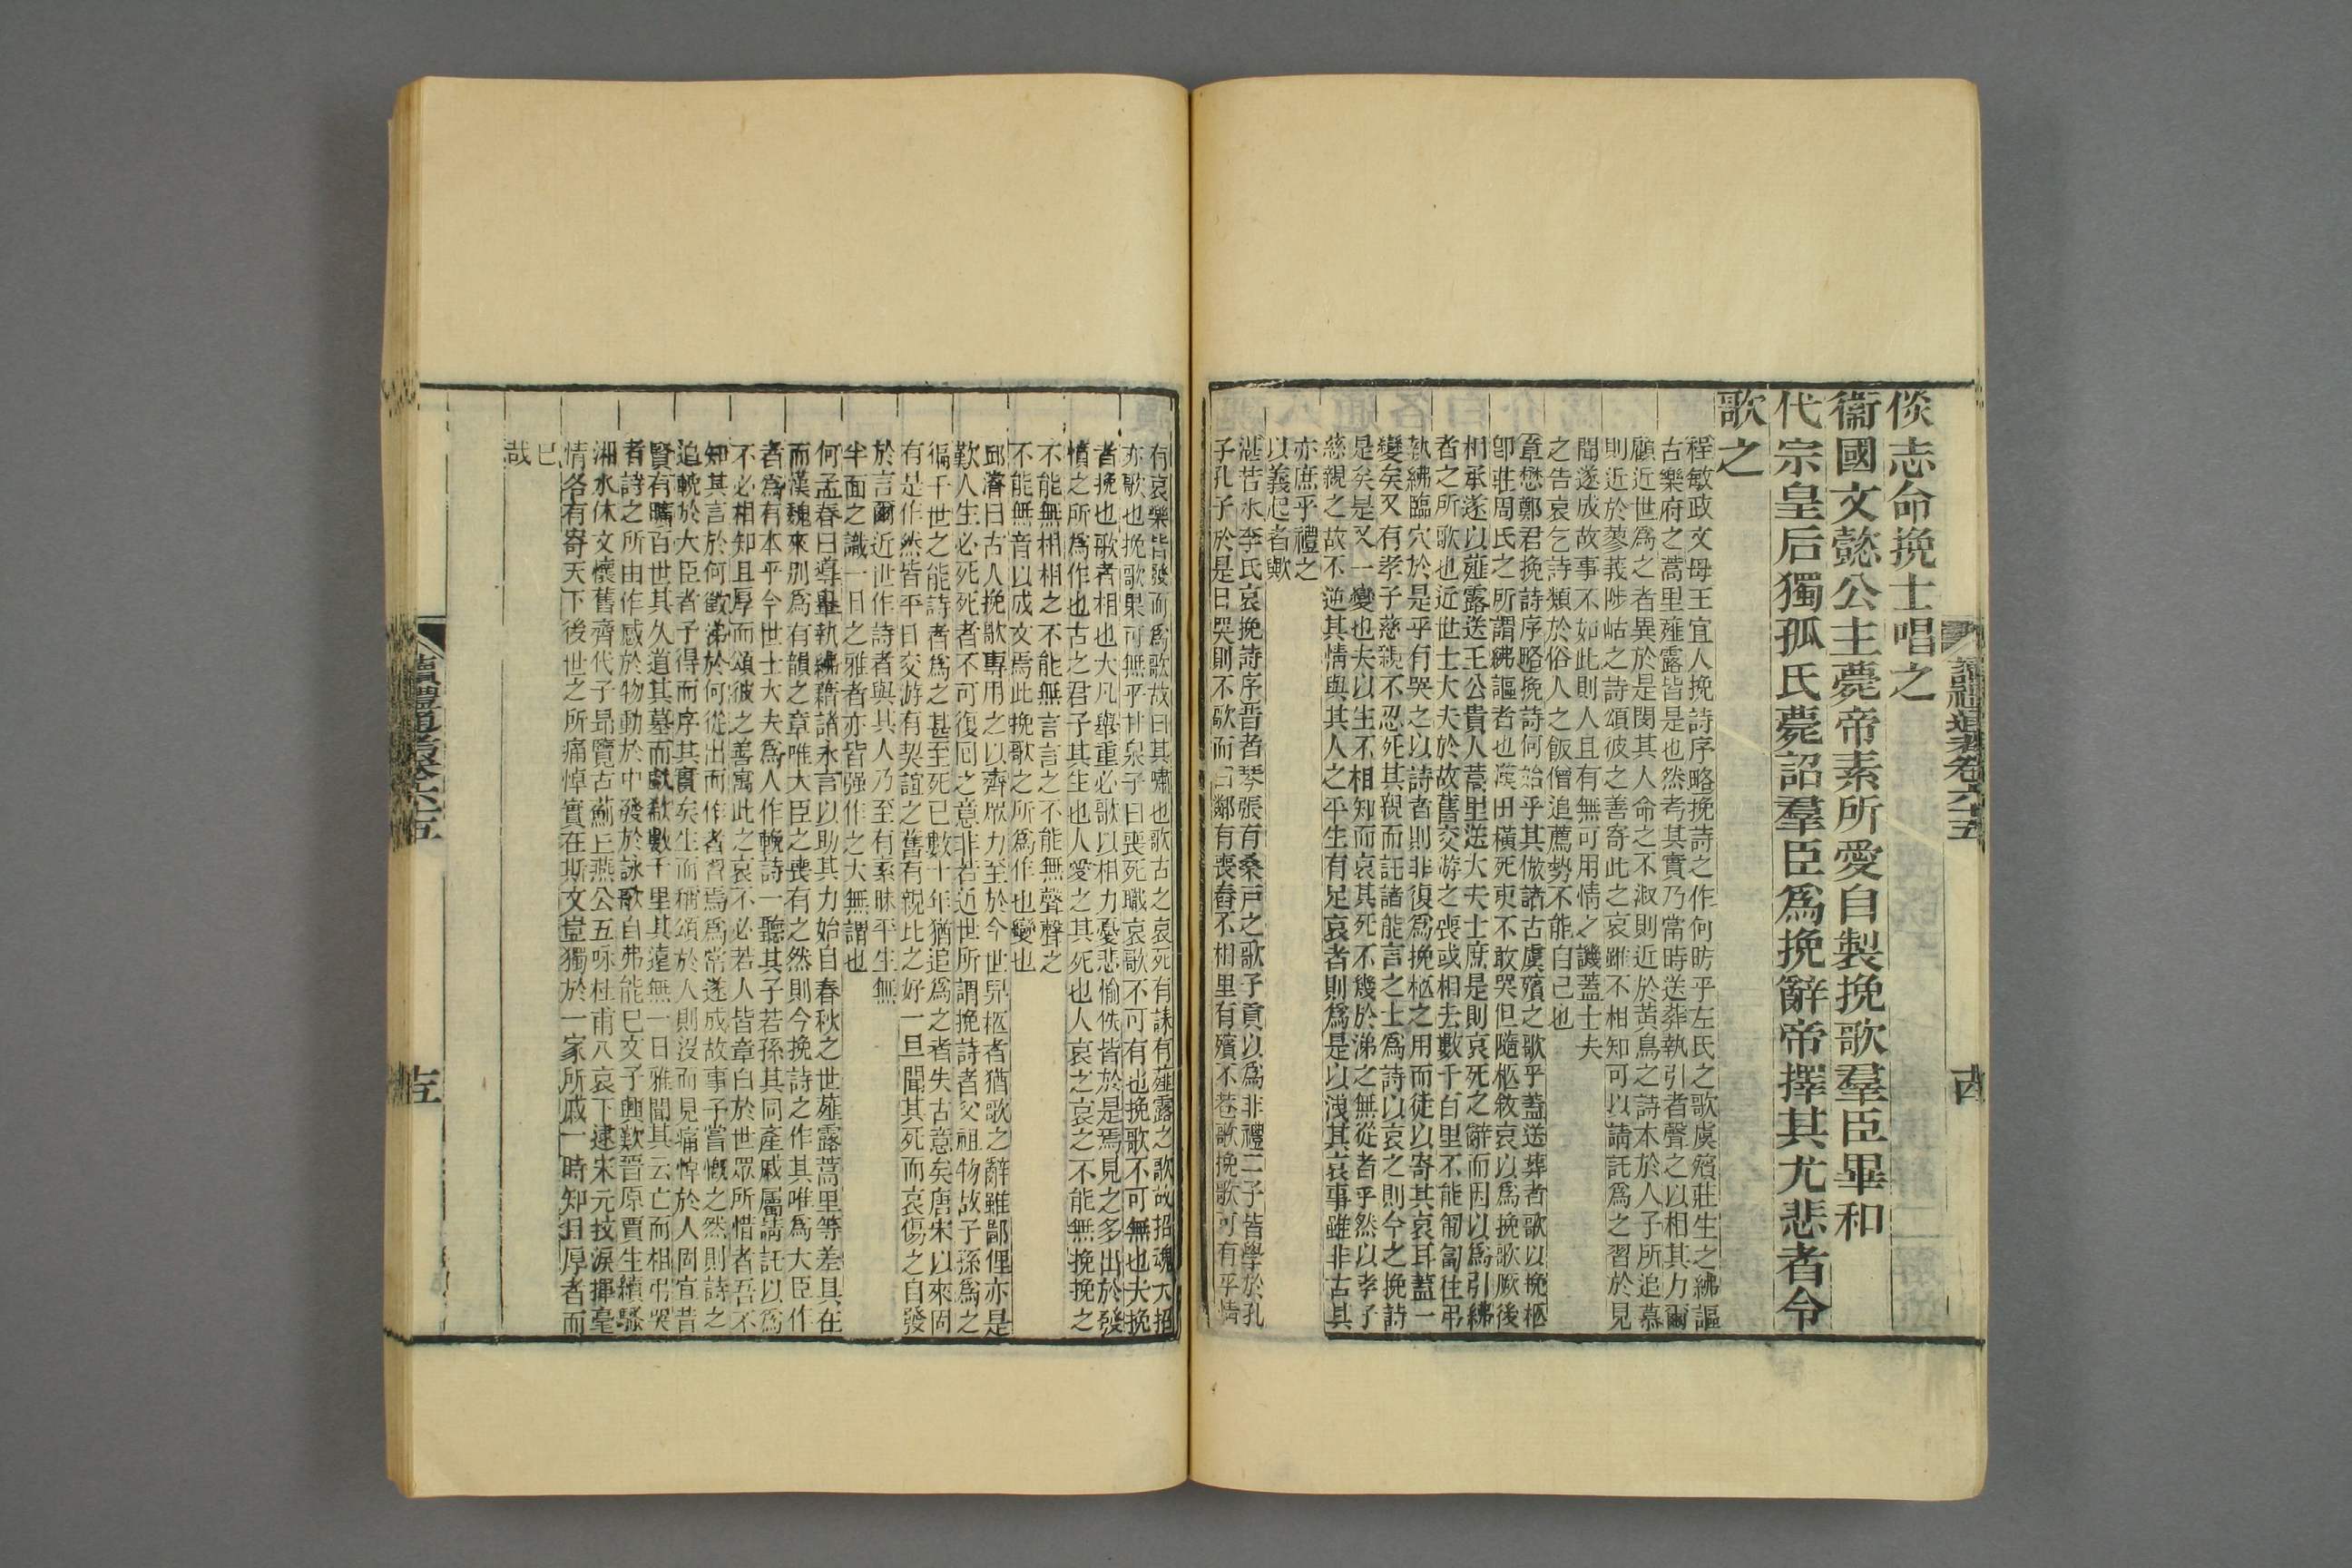 讀禮通考卷六十五
倓志命挽士唱之
衞國文懿公主薨帝素所愛自製挽歌羣臣畢和
代宗皇后獨孤氏薨詔羣臣爲挽辭帝擇其尤悲者令
歌之
程敏政文母王宜人挽詩序略挽詩之作何昉乎左氏之歌虞殯莊生之紼謳
古樂府之蒿里薤露皆是也然考其實乃當時送葬執引者聲之以相其力爾
顧近世爲之者異於是閔其人命之不淑則近於黃鳥之詩本於人子所追慕
則近於蓼莪陟岵之詩頌彼之善寄此之哀雖不相知可以請託爲之習於見
聞遂成故事不如此則人且有無可用情之譏蓋士夫
之告哀乞詩類於俗人之飯僧追薦勢不能自已也
章懋鄭君挽詩序略挽詩何始乎其倣諸古虞殯之歌乎蓋送葬者歌以挽柩
卽莊周氏之所謂紼謳者也漢田橫死吏不敢哭但隨柩敘哀以爲挽歌厥後
相承遂以薤露送王公貴人蒿里送大夫士庶是則哀死之辭而因以爲引紼
者之所歌也近世士大夫於故舊交游之喪或相去數千百里不能匍匐往弔
執紼臨穴於是乎有哭之以詩者則非復爲挽柩之用而徒以寄其哀耳蓋一
變矣又有孝子慈親不忍死其親而託諸能言之士爲詩以哀之則今之挽詩
是矣是又一變也夫以生不相知而哀其死不幾於涕之無從者乎然以孝子
慈親之故不逆其情與其人之平生有足哀者則爲是以洩其哀事雖非古其
亦庶乎禮之
以義起者歟
湛若水李氏哀挽詩序昔者琴張有桑戸之歌子貢以爲非禮二子皆學於孔
子孔子於是日哭則不歌而曰鄰有喪舂不相里有殯不巷歌挽歌可有乎情
有哀樂皆發而爲歌故曰其嘯也歌古之哀死有誄有薤露之歌故招魂大招
亦歌也挽歌果可無乎甘泉子曰喪死職哀歌不可有也挽歌不可無也夫挽
者挽也歌者相也大凡舉重必歌以相力憂悲愉佚皆於是焉見之多出於發
憤之所爲作也古之君子其生也人愛之其死也人哀之哀之不能無挽挽之
不能無相相之不能無言言之不能無聲聲之
不能無音以成文焉此挽歌之所爲作也變也
邱濬曰古人挽歌專用之以齊眾力至於今世舁柩者猶歌之辭雖鄙俚亦是
歎人生必死死者不可復囘之意非若近世所謂挽詩者父祖物故子孫爲之
徧干世之能詩者爲之甚至死已數十年猶追爲之者失古意矣唐宋以來固
有是作然皆平日交游有契誼之舊有親比之好一旦聞其死而哀傷之自發
於言爾近世作詩者與其人乃至有素昧平生無
半面之識一日之雅者亦皆强作之大無謂也
何孟春曰導轝執紼藉諸永言以助其力始自春秋之世薤露蒿里等差具在
而漢魏來別爲有韻之章唯大臣之喪有之然則今挽詩之作其唯爲大臣作
者爲有本乎今世士大夫爲人作輓詩一聽其子若孫其同產戚屬請託以爲
不必相知且厚而頌彼之善寓此之哀不必若人皆章白於世眾所惜者吾不
知其言於何徵涕於何從出而作者習焉爲常遂成故事子嘗慨之然則詩之
追輓於大臣者予得而序其實矣生而稱頌於人則沒而見痛悼於人固宜昔
賢有曠百世其久道其墓而歔欷數千里其遠無一日雅聞其云亡而相弔哭
者詩之所由作感於物動於中發於詠歌自弗能已文子興歎晉原賈生續騷
湘水休文懷舊齊代子昻覽古薊丘燕公五咏杜甫八哀下逮宋元抆淚揮毫
情各有寄天下後世之所痛悼實在斯文豈獨於一家所戚一時知且厚者而
已
哉
讀禮通考卷六十五